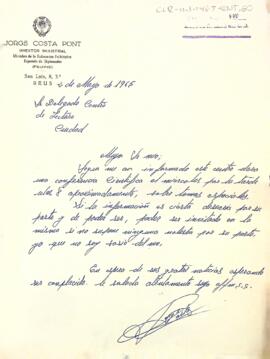 JORGE COSTA PONT
INVENTOR INDUSTRIAL
Miembro de la Federación Filatélica
Española de
San Luis, 8, 3º
REUS 2 de Mayo de 1966
Sr Delegado Centro
de Lectura
Ciudad
Muy Sr mio,
Segun me an informado este centro dara
una conferencia Cientifica el miercoles por la tarde
alas 8 aproximadamente, sobre temas espaciales.
Si la informacion es cierta desearia por su
parte y de poder ser, poder ser invitado en la
misma si no supone ninguna molestia por su parte,
ya que no soy socio del mismo.
En espera de sus gratas noticias esperando
ser complacido le saluda atentamente